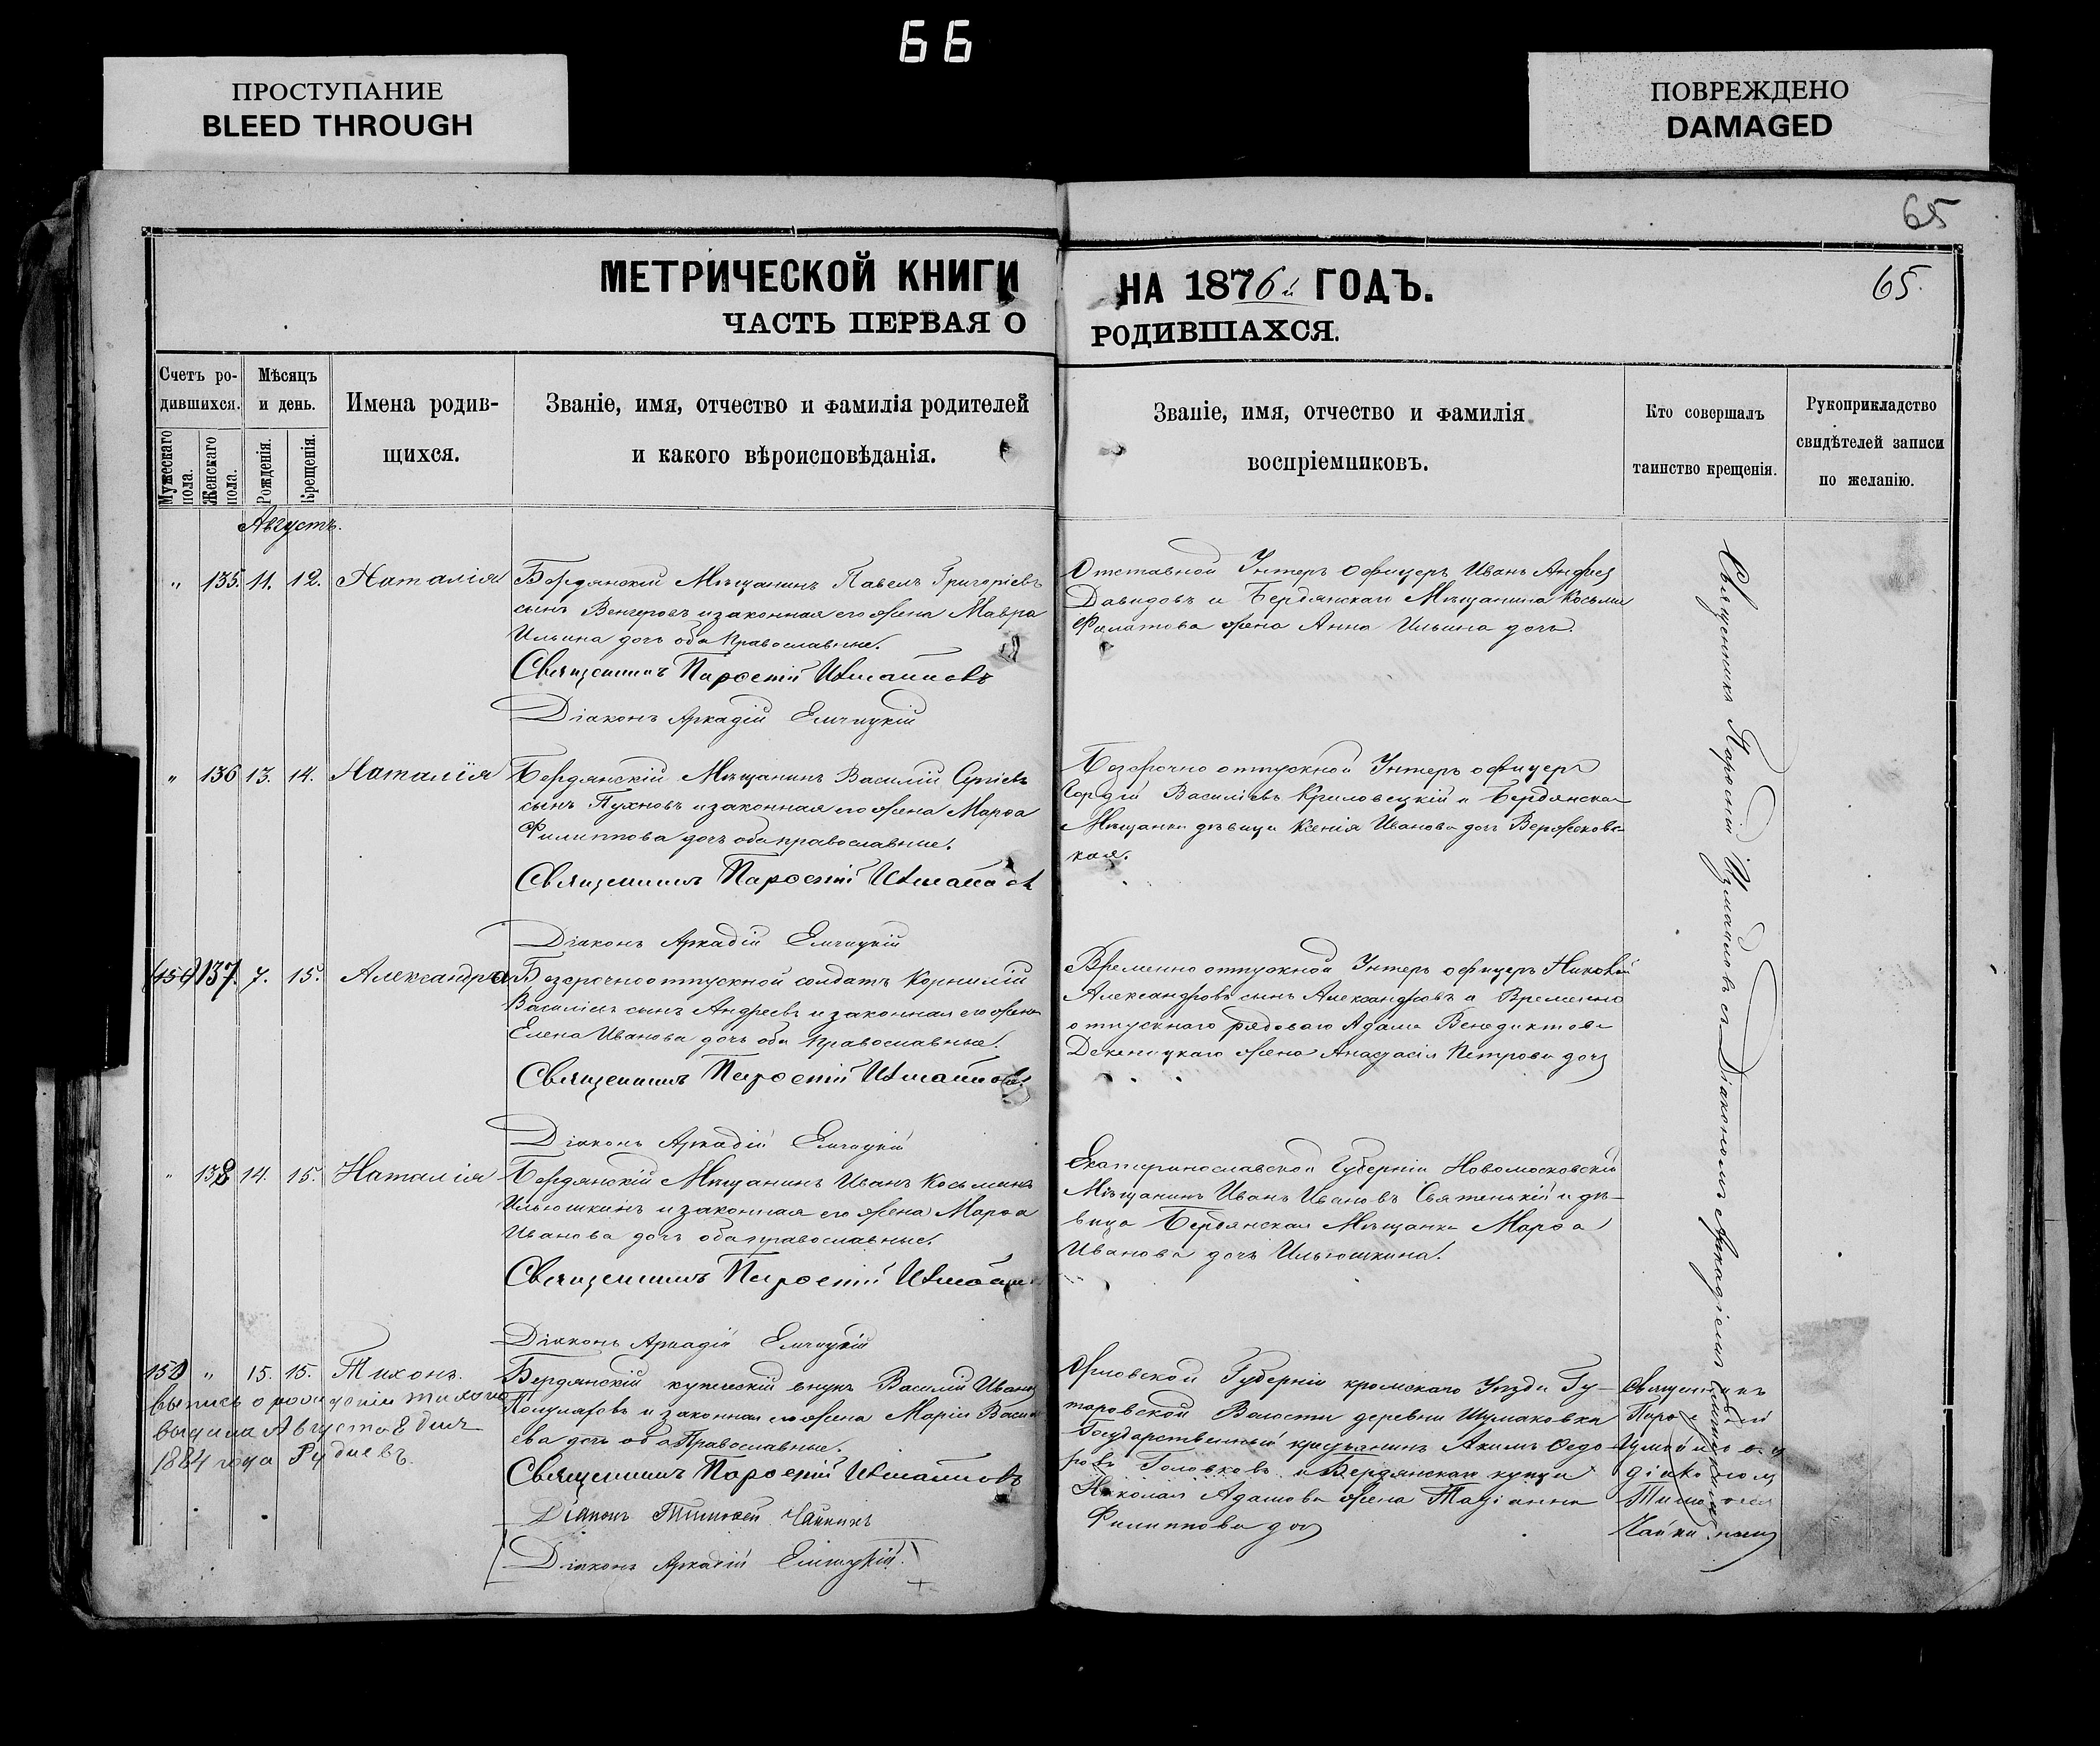 66
ПРОСТУПАНИЕ
BLEED THROUGH
ПОВРЕЖДЕНО
DAMAGED
65
МЕТРИЧЕСКОЙ КНИГИ
НА 1876й ГОДЪ.
65.
ЧАСТЬ ПЕРВАЯ О
РОДИВШАХСЯ.
Счетъ ро-
дившихся.
Мужескаго пола.
Женскаго пола.
Мѣсяцъ
и день.
Рожденія.
Крещенія.
Имена родив-
щихся.
Званіе, имя, отчество и фамилія родителей
и какого вѣроисповѣданія.
Званіе, имя, отчество и фамилія
воспріемниковъ.
Кто совершалъ
таинство крещенія.
Рукоприкладство
свидѣтелей записи
по желанію.
Августъ.
" 135. 11. 12. Наталія
Бердянскій Мѣщанинъ Павелъ Григоріевъ
сынъ Венгеровъ и законная его жена Мавра
Ильина дочь оба Православные.
Священникъ
Діаконъ Аркадій
Отставной Унтеръ офицеръ Иванъ
Давидовъ и Бердянскаго Мѣщанина Косьмы
Филатова жена Анна Ильина дочь.
" 136 13. 14. Наталія
Бердянскій Мѣщанинъ Василій
сынъ Пухновъ и законная его жена Марѳа
Филиппова дочь оба православные.
Священникъ
Діаконъ Аркадій
Безсрочно отпускной Унтеръ офицеръ
Гордій Василіевъ Криловецкій и Бердянская
Мѣщанка дѣвица Ксенія Иванова дочь
кая.
137. 7. 15. Александра
Безсрочноотпускной солдатъ Корнилій
Василіевъ сынъ Андреевъ и законная его жена
Елена Иванова дочь оба православные.
Священникъ
Діаконъ Аркадій
Временно отпускной Унтеръ офицеръ
Александровъ сынъ Александровъ и Временно
отпускнаго рядоваго Адама Венедиктова
жена Анастасія Петрова дочь
" 138 14. 15. Наталія
Бердянскій Мѣщанинъ Иванъ Косьминъ
Ильюшкинъ и законная его жена Марѳа
Иванова дочь оба православные.
Священникъ
Діаконъ Аркадій
Екатеринославской Губерніи Новомосковскій
Мѣщанинъ Иванъ Ивановъ Святенькій и дѣ-
вица Бердянская Мѣщанка Марѳа
Иванова дочь Ильюшкина.
150 " 15. 15. Тихонъ.
выпись о рожденіи Тихона
выдана Августа 8 дня
1884 года Рудневъ.
Бердянскій купеческій внукъ Василій
и законная его жена Марія
ева дочь оба Православные.
Священникъ
Діаконъ Тимоѳей Чайкинъ
Діаконъ Аркадій
Орловской Губерніи кромскаго Уѣзда Гу-
таровской Волости деревни Шумаковка
Государственный крестьянинъ Акимъ Ѳедо-
ровъ Головковъ и Бердянскаго купца
Николая Адамова жена Татіанна
Филиппова дочь
Священникъ
діакономъ
Тимоѳеемъ
Чайкинымъ
Священникъ Измайловъ съ Діакономъ Аркадіемъ